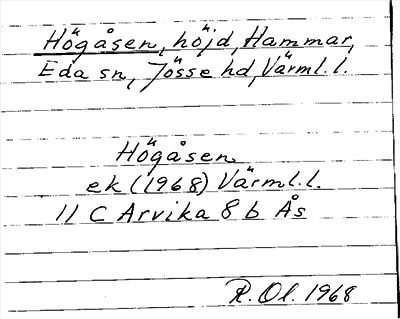 Högåsen, höjd, Hammar,
Eda sn, Jösse hd, Värml. l.
Högåsen
ek (1968) Värml. l.
11 C Arvika 8 b Ås
R. Ol. 1968